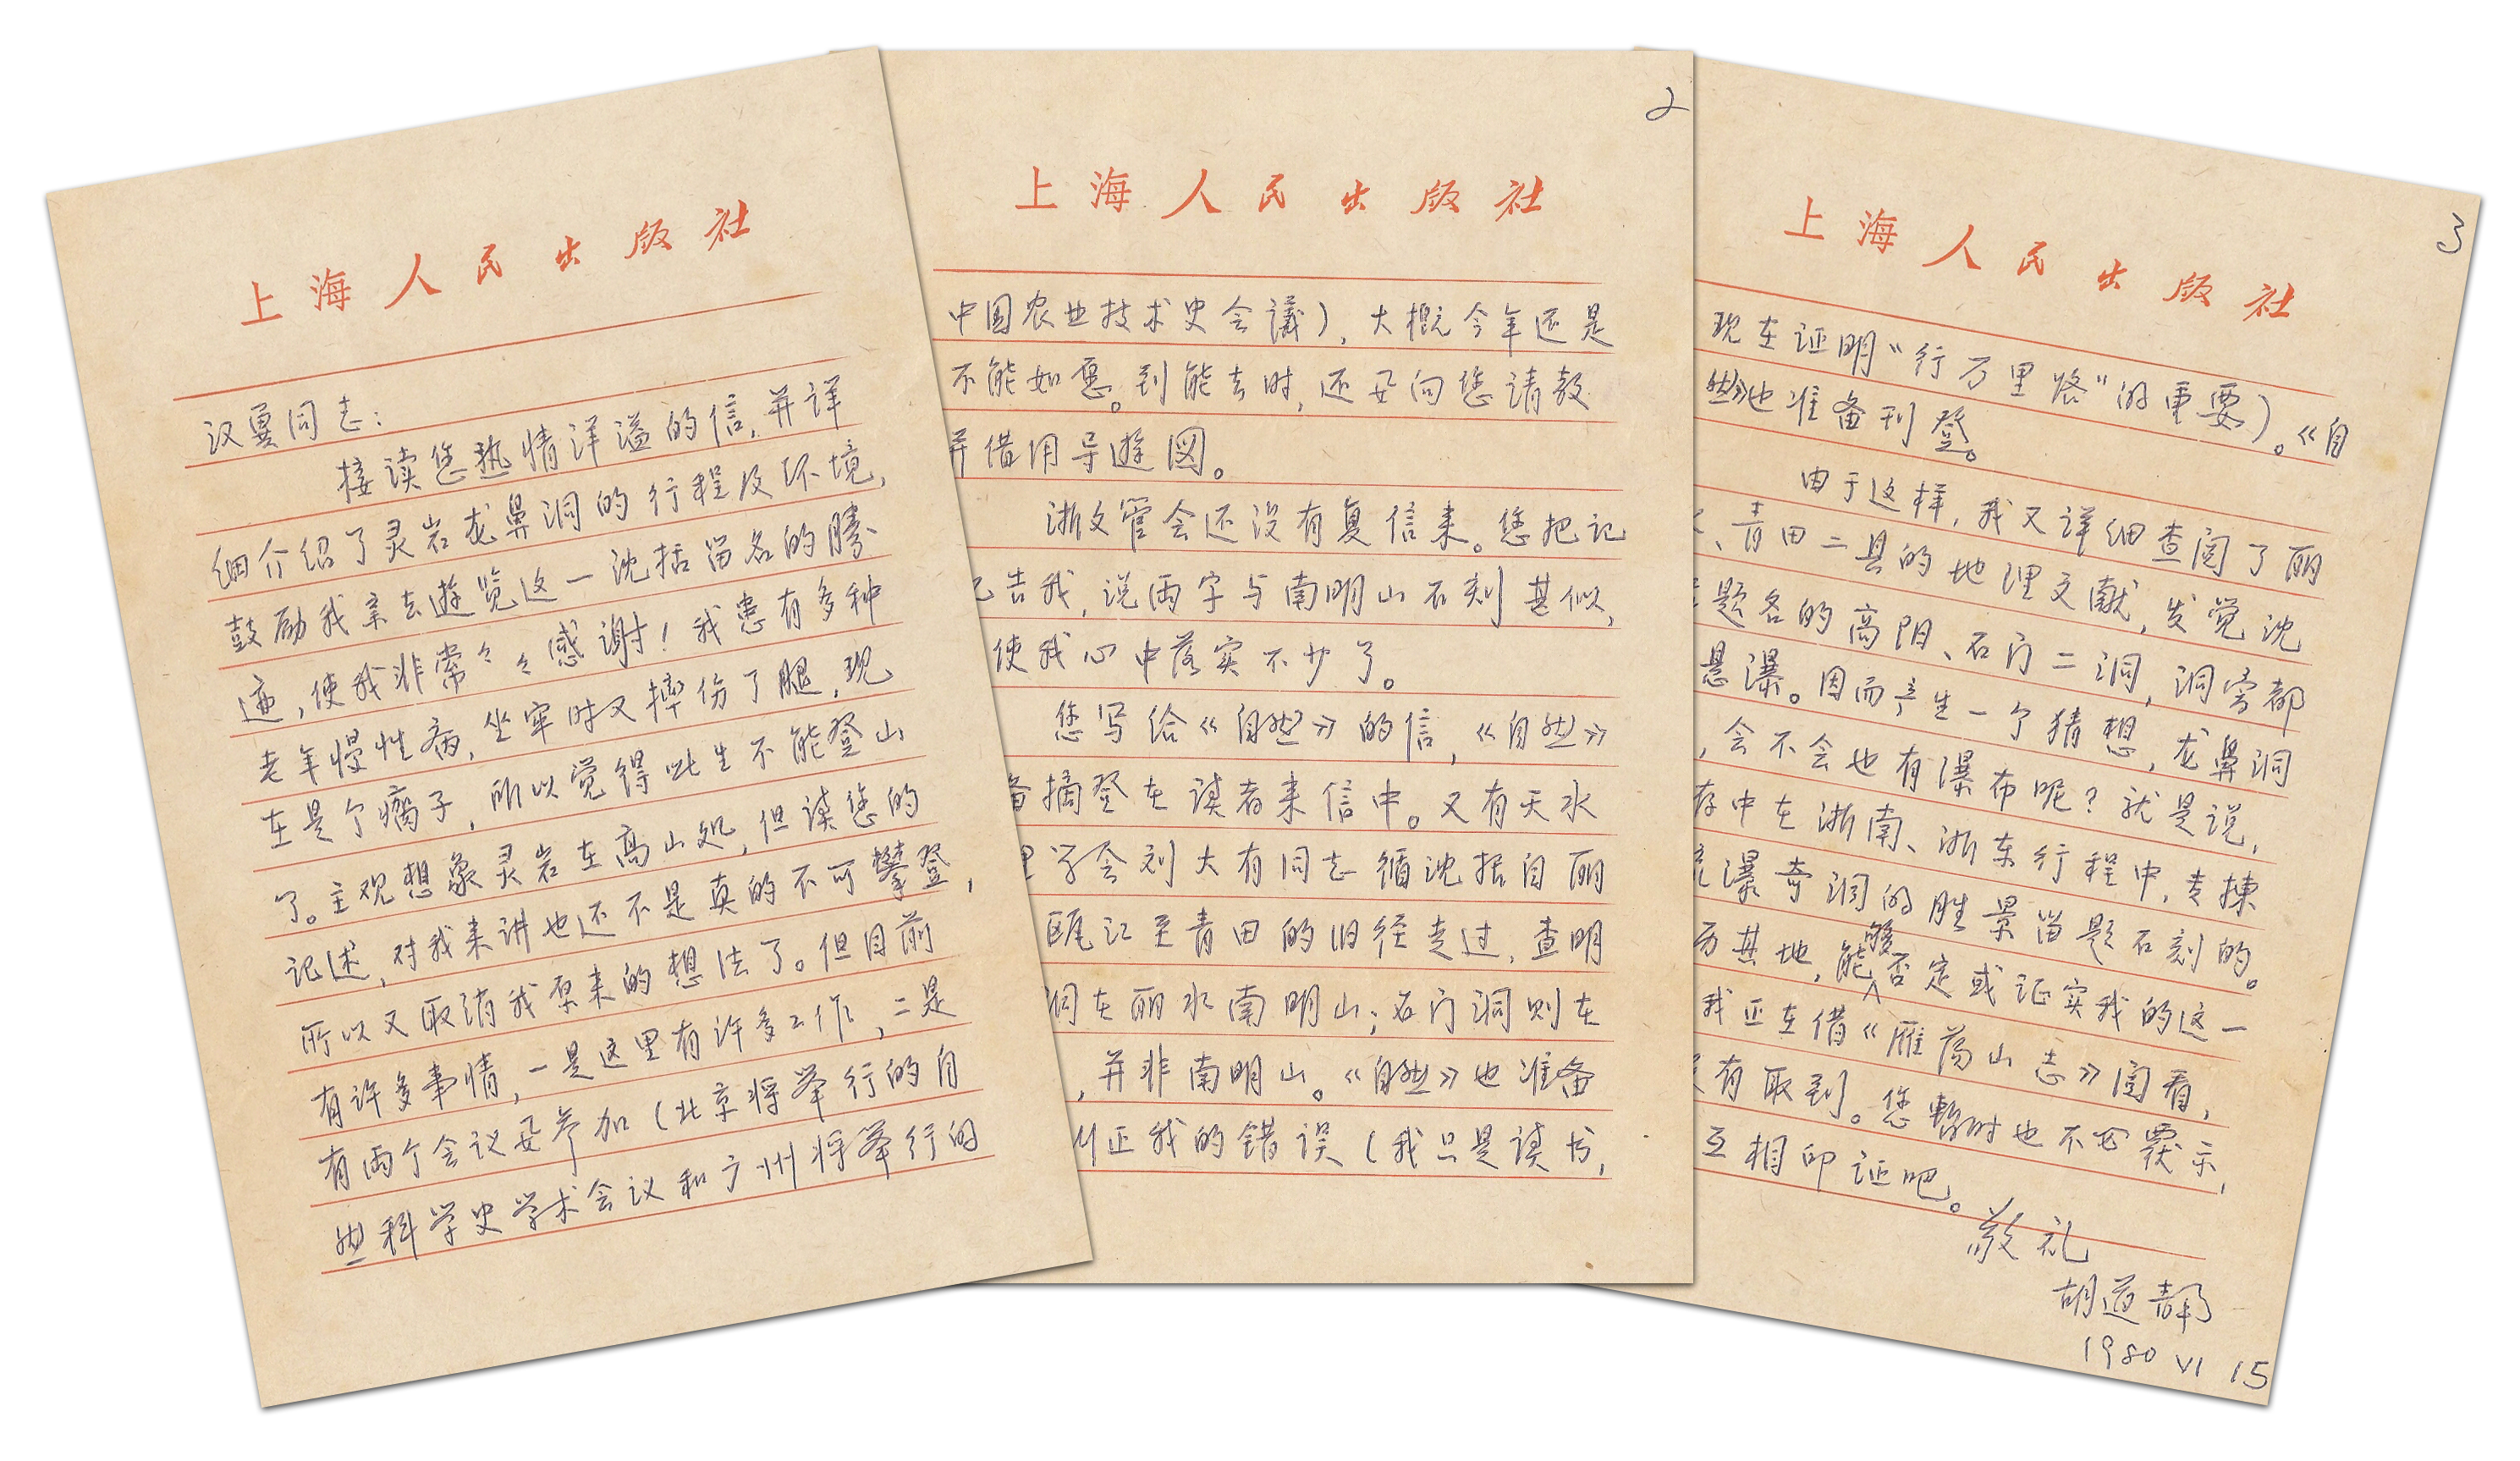 上海人民出版社
汉勇同志：
接读您热情洋溢的信，并详
细介绍了灵岩龙鼻洞的行程及环境，
鼓励我亲去遊览这一沈括留名的勝
迹，使我非常々々感谢！我患有多种
老年慢性病，坐牢时又摔伤了腿，现
在是个瘸子，所以觉得此生不能登山
了。主观想象灵岩在高山处，但读您的
记述，对我来讲也还不是真的不可攀登，
所以又取消我原来的想法了。但目前
有许多事情，一是这里有许多工作，二是
有两个会议要参加（北京将举行的自
然科学史学术会议和广州将举行的
2
上海人民出版社
中国农业技术史会議），大概今年还是
不能如愿。到能去时，还要向您请教
并借用导遊図。
浙文管会还没有复信来。您把记
告我，说两字与南明山石刻甚似，
使我心中落实不少了。
您写给《自然》的信，《自然》
备摘登在读者来信中。又有天水
学会刘大有同志循沈括自丽
瓯江至青田的旧径走过，查明
洞在丽水南明山；石门洞则在
，并非南明山。《自然》也准备
正我的错误（我只是读书，
3
上海人民出版社
现在证明“行万里路”的重要）。《自
然》也准备刊登。
由于这样，我又详细查阅了丽
、青田二县的地理文献，发觉沈
题名的高阳、石门二洞，洞旁都
悬瀑。因而产生一个猜想，龙鼻洞
，会不会也有瀑布呢？就是说，
存中在浙南、浙东行程中，专揀
瀑奇洞的胜景留题石刻的。
历其地，能够否定或证实我的这一
我正在借《雁荡山志》阅看，
有取到。您暫时也不必覆示，
互相印证吧。
敬礼
胡道静
1980 VI 15